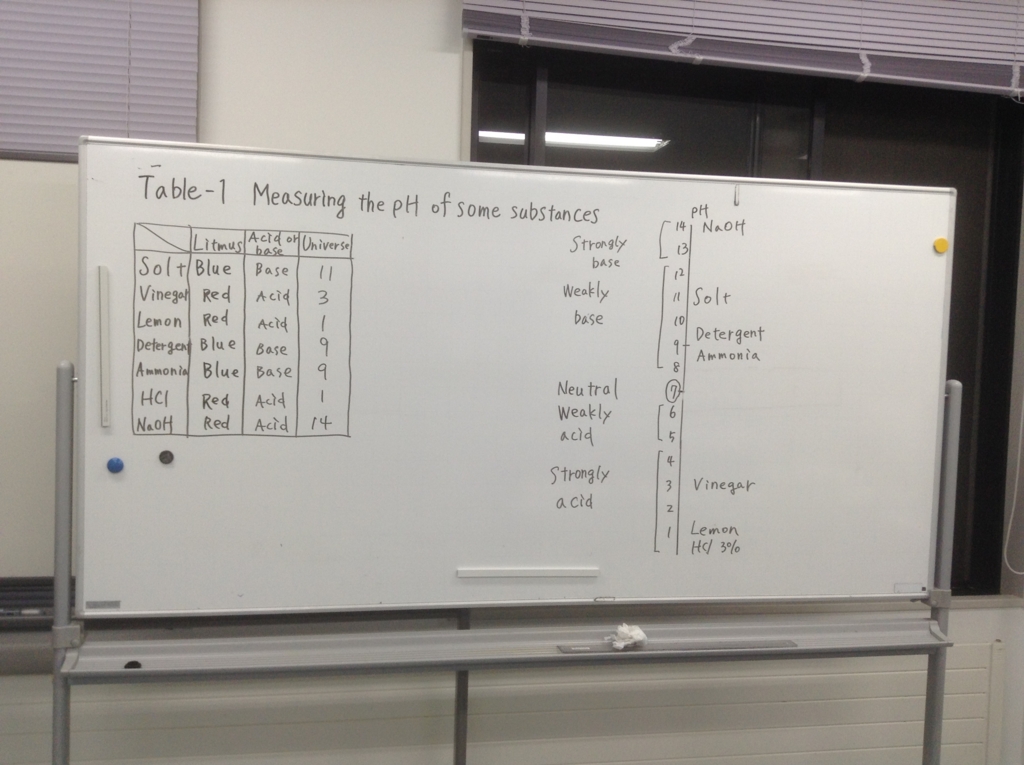 Table-1 Measuring the pH of some substances
Litmus Acid or base Universe
Solt Blue Base 11
Vinegar Red Acid 3
Lemon Red Acid 1
Detergent Blue Base 9
Ammonia Blue Base 9
HCl Red Acid 1
NaOH Red Acid 14
pH
14 NaOH
Strongly
base
13
12
Weakly
base
11 Solt
10
Detergent
9
Ammonia
8
Neutral 7
Weakly
acid
6
5
4
Strongly
acid
3 Vinegar
2
1 Lemon
HCl 3%